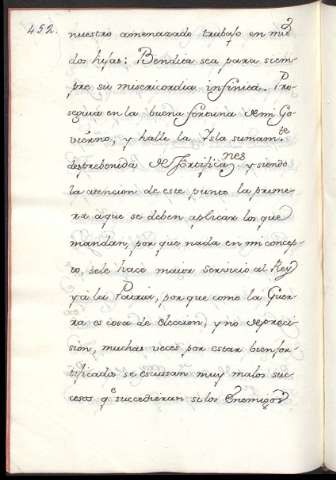 452.
nuestro amenazado trabajo en mis
dos hijas: Bendita sea para siem-
pre su misericordia infinita. Pro-
seguia en la buena fortuna de mi Go-
vierno, y hallè la Ysla sumam.te
desprebenida de fortifica.nes y siendo
la atencion de este punto la prime-
ra aque se deben aplicar los que
mandan, por que nada en mi concep-
to, sele hace maior servicio al Rey
y á la Patria, por que como la Guer-
ra es cosa de eleccion, y no de preci-
sion, muchas veces por estar bien for-
tificados se escusan muy malos suc-
cesos q.e succedieran si los Enemigos